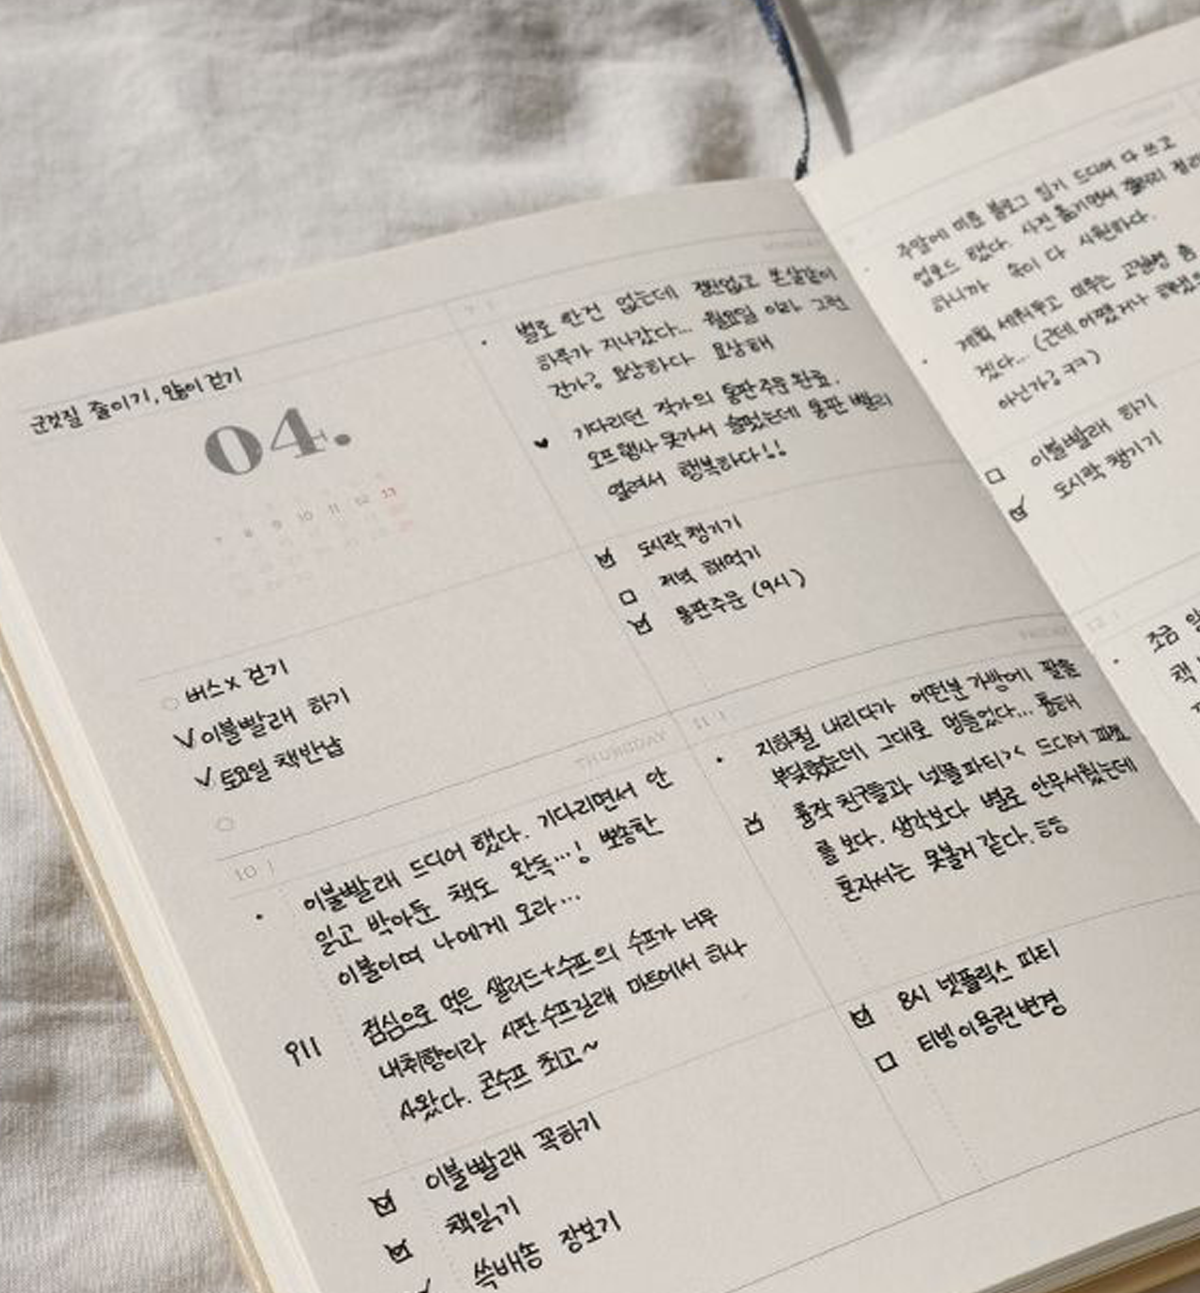 군것질 줄이기, 많이 걷기
04.
7 8 9 10 11 12 13
버스x 걷기
이불빨래 하기
토요일 책반납
MONDAY
별로 한건 없는데 정신없고 쏜살같이
하루가 지나갔다... 월요일 이라 그런
건가? 요상하다 요상해
기다리던 작가의 통판주문 완료.
오프행사 못가서 슬펐는데 통판 빨리
열려서 행복하다!!
도시락 챙기기
저녁 해먹기
통판주문 (9시)
THURSDAY
10
이불빨래 드디어 했다. 기다리면서 안
읽고 박아둔 책도 완독...! 뽀송한
이불이여 나에게 오라...
점심으로 먹은 샐러드+수프의 수프가 너무
내취향이라 시판 수프길래 마트에서 하나
사왔다. 콘수프 최고~
이불빨래 꼭하기
책읽기
쓱배송 장보기
FRIDAY
11
지하철 내리다가 어떤분 가방에 팔을
부딪혔는데 그대로 멍들었다...
친구들과 넷플파티>< 드디어
를 보다. 생각보다 별로 안무서웠는데
혼자서는 못볼거 같다.ㅎㅎ
8시 넷플릭스 파티
티빙이용권변경
주말에 미룬 블로그 일기 드디어 다 쓰고
업로드 했다. 사진 옮기면서
하니까 속이 다 시원하다.
계획 세워두고 미루는 고질병 좀
겠다... (근데 어쨌거나
아닌가?ㅋㅋ)
이불빨래 하기
도시락 챙기기
12
조금
책